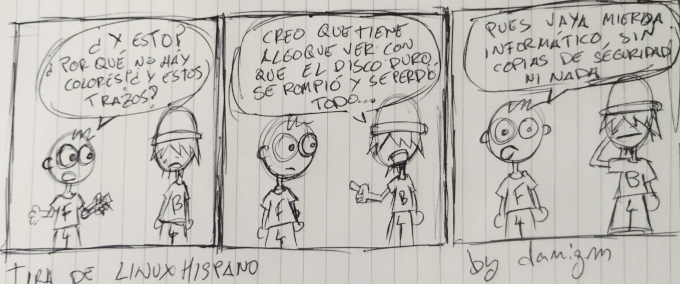 ¿Y ESTO?
¿POR QUÉ NO HAY
COLORES? ¿Y ESTOS
TRAZOS?
CREO QUE TIENE
ALGO QUE VER CON
QUE EL DISCO DURO
SE ROMPIÓ Y SE PERDIÓ
TODO...
PUES VAYA MIERDA
INFORMÁTICO SIN
COPIAS DE SEGURIDAD
NI NADA
F
B
F
B
F
B
TIRA DE LINUXHISPANO
by damigm